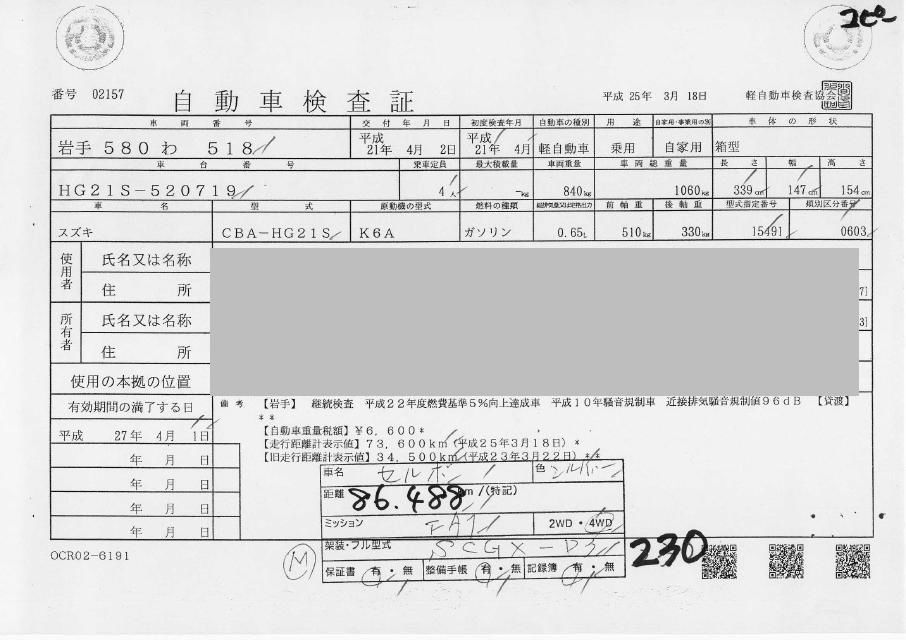 コピー
番号 02157 自動車検査証 平成 25年 3月 18日 軽自動車検査協会
車両番号 交付年月日 初度検査年月 自動車の種別 用途 自家用・事業用の別 車体の形状
岩手 580 わ 518 平成 21年 4月 2日 平成 21年 4月 軽自動車 乗用 自家用 箱型
車台番号 乗車定員 最大積載量 車両重量 車両総重量 長さ 幅 高さ
HG21S-520719 4人 -kg 840kg 1060kg 339cm 147cm 154cm
車名 型式 原動機の型式 燃料の種類 総排気量又は定格出力 前軸重 後軸重 型式指定番号 類別区分番号
スズキ CBA-HG21S K6A ガソリン 0.65L 510kg 330kg 15491 0603
使用者 氏名又は名称
住所
7]
所有者 氏名又は名称
3]
住所
使用の本拠の位置
有効期間の満了する日
備考 【岩手】 継続検査 平成22年度燃費基準5%向上達成車 平成10年騒音規制車 近接排気騒音規制値96dB 【貸渡】
**
平成 27年 4月 1日
【自動車重量税額】¥6,600*
【走行距離計表示値】73,600km(平成25年3月18日)*
【旧走行距離計表示値】34,500km(平成23年3月22日)**
年 月 日
年 月 日
年 月 日
年 月 日
車名 セルボ 色 シルバー
距離 86.488 km/(特記)
ミッション FAT 2WD・4WD
架装・フル型式 SCGX-D3
保証書 有・無 整備手帳 有・無 記録簿 有・無
230
M
OCR02-6191